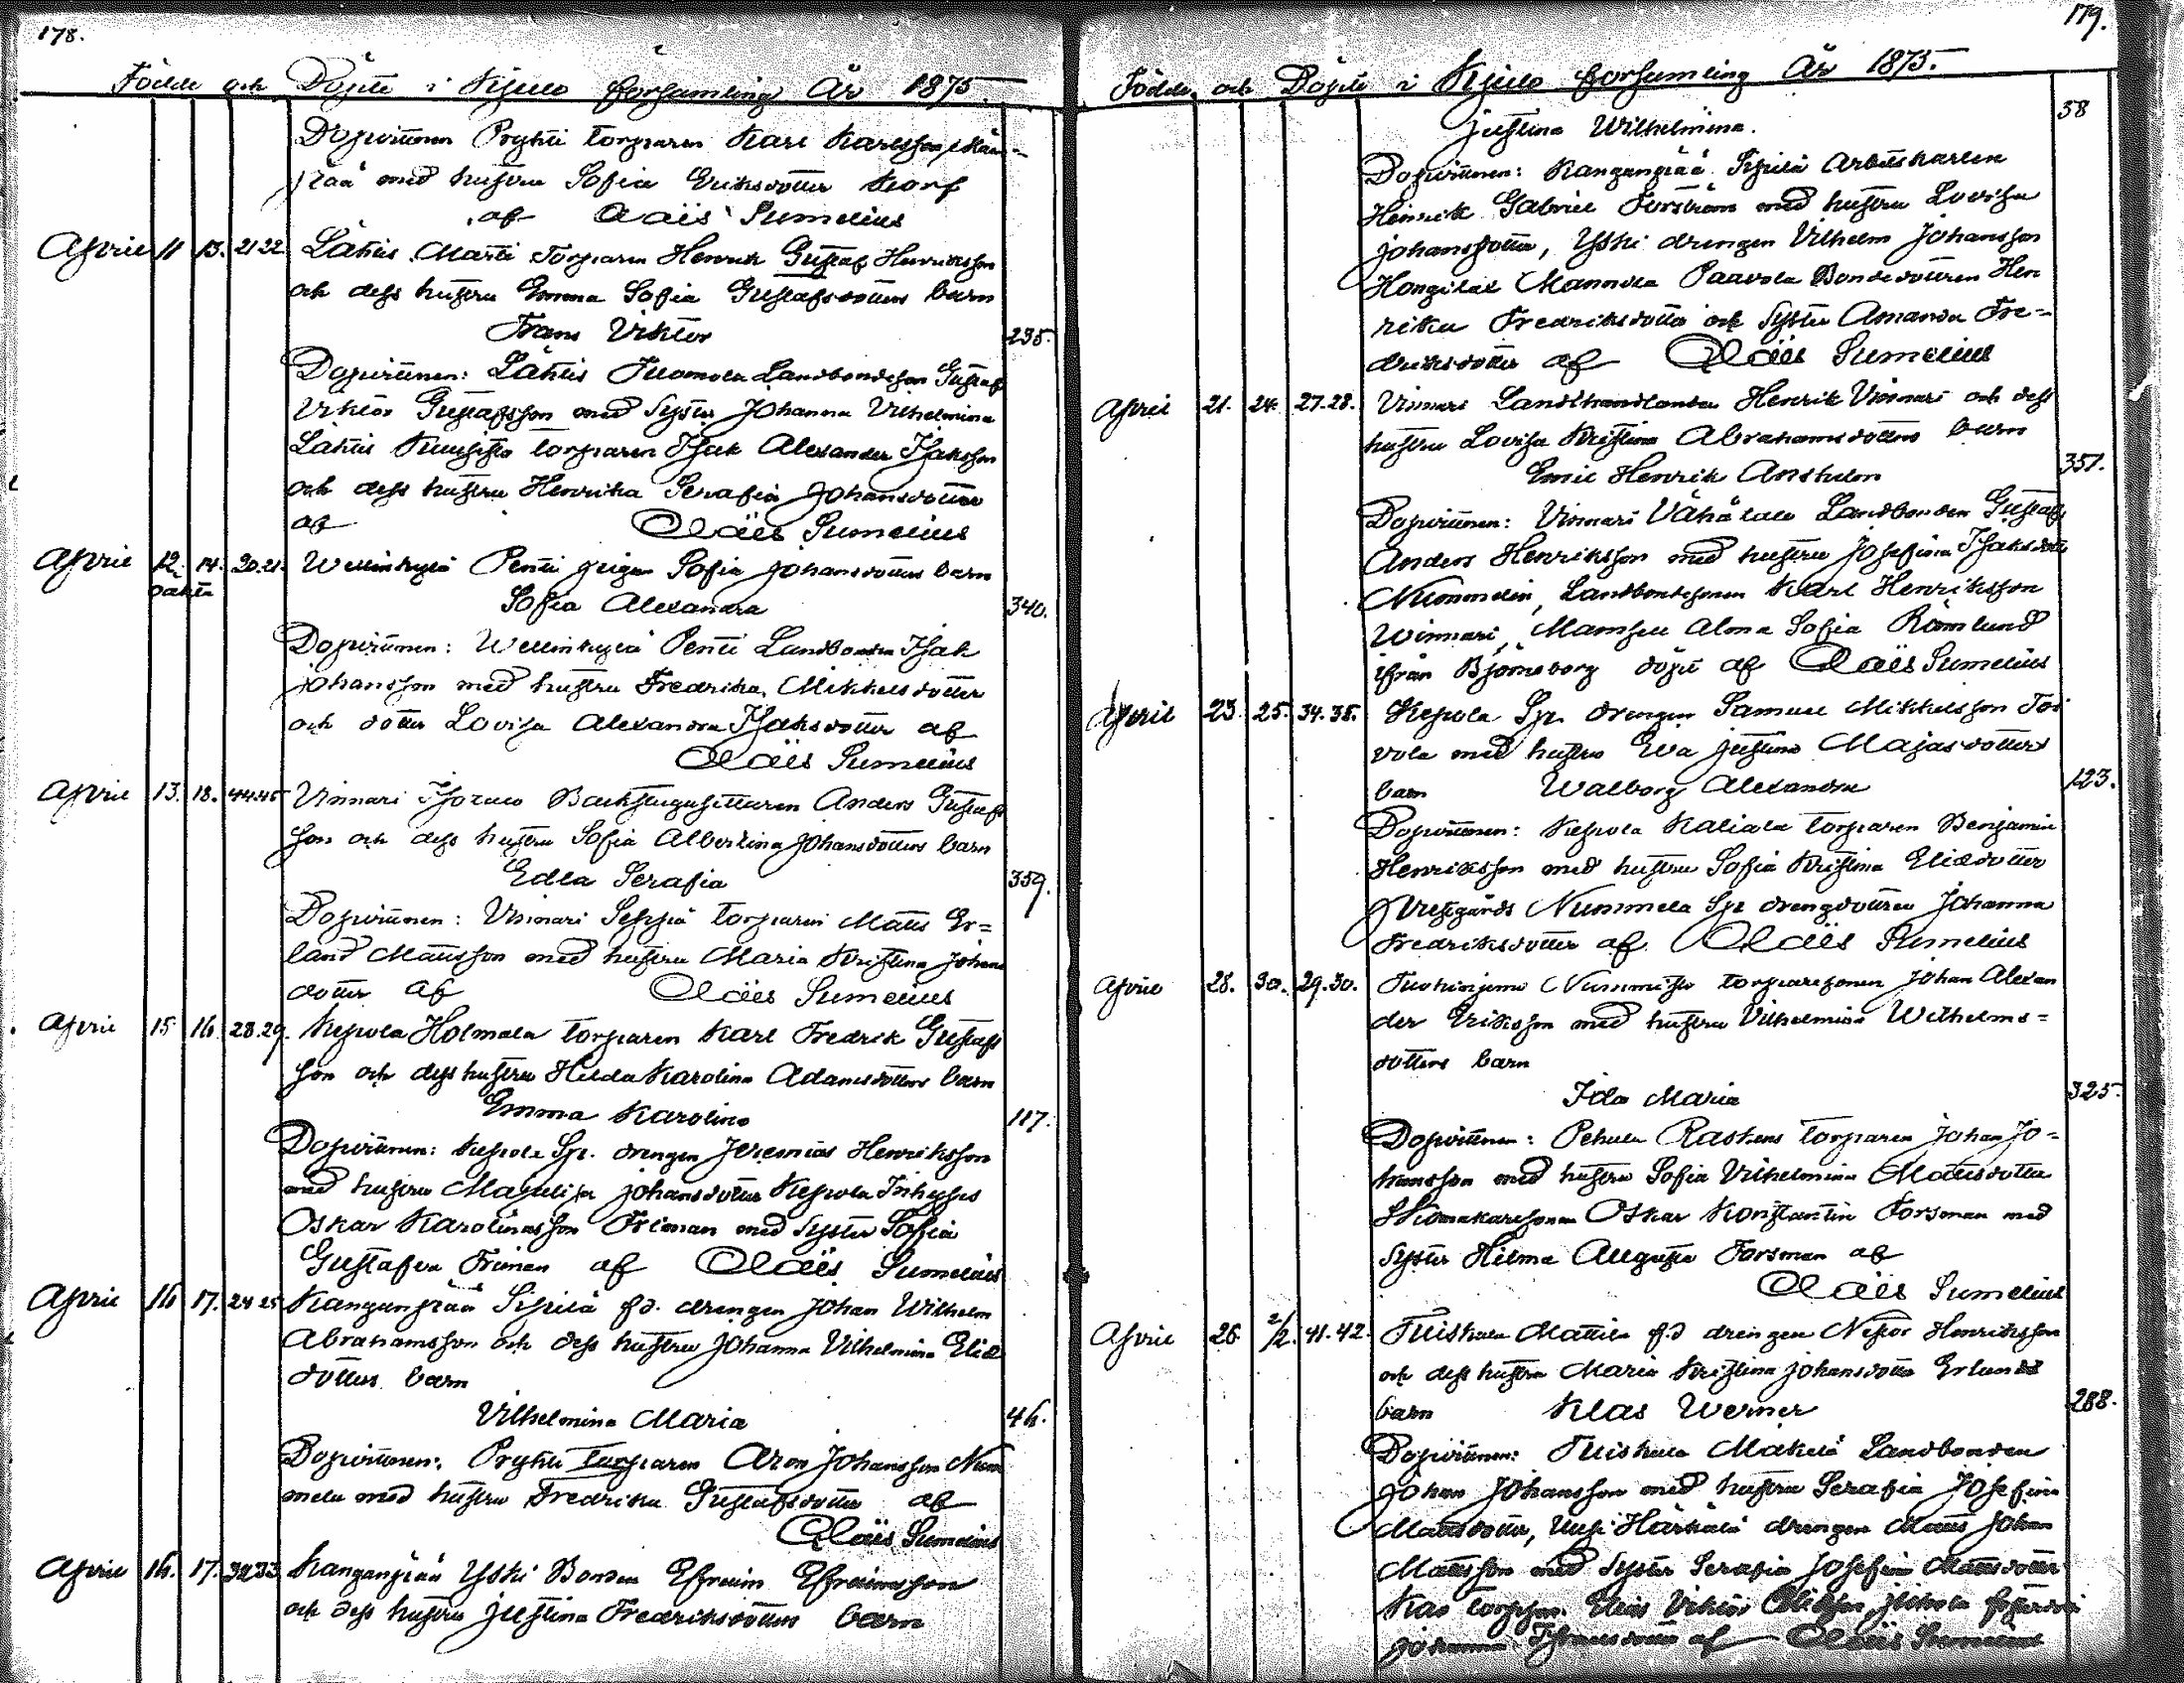 178.
Födde och Döpte i Kjulo församling År 1875
Dopvittnen Prykti torparen Karl Karlsson
med hustru Sofia Eriksdotter Korf
af Claës Sumelius
April 11 13. 21 22. Lähtis Martti Torparen Henrik Gustaf Henriksson
och dess hustru Emma Sofia Gustafsdotters barn
Frans Viktor 235.
Dopvittnen: Lähtis Tuomola Landbondeson Gustaf
Viktor Gustafsson med Syster Johanna Vilhelmina
Lähtis Kuusisto torparen Isak Alexander Isaksson
och dess hustru Henrika Serafia Johansdotter
af Claës Sumelius
April 12. 14. 20.21. Wellinkylä Pentti pigan Sofia Johansdotters barn
oäkta
Sofia Alexandra 340.
Dopvittnen: Wellinkylä Pentti Landbonden Isak
Johansson med hustru Fredrika Mikkelsdotter
och dotter Lovisa Alexandra Isaksdotter af
Claës Sumelius
April 13. 18. 44.45 Vinnari Backstugusittaren Anders Gustafs
son och dess hustru Sofia Albertina Johansdotters barn
Edla Serafia 359.
Dopvittnen: Vinnari Seppä torparen Matts Er=
land Mattsson med hustru Maria Kristina Johans
dotter af Claës Sumelius
April 15 16 28.29. Kepola Holmala torparen Karl Fredrik Gustafs
son och dess hustru Hilda Karolina Adamsdotters barn
Emma Karolina 117.
Dopvittnen: Kepola Spr. drengen Jeremias Henriksson
med hustru Majalisa Johansdotter Kepola Inhyses
Oskar Karolinasson Friman med Syster Sofia
Gustafva Friman af Claës Sumelius
April 16 17. 24 25 Kanganpää Sipilä f.d. drengen Johan Wilhelm
Abrahamsson och dess hustru Johanna Vilhelmina Elias
dotters barn
Vilhelmina Maria 46.
Dopvittnen: Prykti Torparen Aron Johansson Num
mela med hustru Fredrika Gustafsdotter af
Claës Sumelius
April 16. 17. 32 33 Kanganpää Yski Bonden Efraim Efraimsson
och dess hustru Justina Fredriksdotters barn
179.
Födde och Döpte i Kjulo församling År 1875.
Justina Wilhelmina. 58
Dopvittnen: Kanganpää Sipilä Arbetskarlen
Henrik Gabriel Forsström med hustru Lovisa
Johansdotter, Yski drengen Vilhelm Johansson
Hongilax Mannila Paavola Bondedottren Hen
rika Fredriksdotter och Syster Amanda Fre=
driksdotter af Claës Sumelius
April 21. 24. 27.28. Vinnari Landthandlanden Henrik Vinnari och dess
hustru Lovisa Kristina Abrahamsdotters barn
Emil Henrik Anshelm 351.
Dopvittnen: Vinnari Vähätalo Landbonden Gustaf
Anders Henriksson med hustru Josefina Isaksdotter
Nummelin, Landbondesonen Karl Henriksson
Winnari, Mamsell Alma Sofia
ifrån Björneborg döpt af Claës Sumelius
April 23 25. 34.35. Kepola Spr. drengen Samuel Mikkelsson Toi
vola med hustru Eva Justina Majasdotters
barn Walborg Alexandra 123.
Dopvittnen: Kepola Kaliala torparen Benjamin
Henriksson med hustru Sofia Kristina Eliædotter
Prestgårds Nummela Spr drengdottren Johanna
Fredriksdotter af Claës Sumelius
April 28. 30. 29.30. Tuohiniemi Nummisto torparesonen Johan Alexan
der Eriksson med hustru Vilhelmina Wilhelms=
dotters barn
Ida Maria 325.
Dopvittnen: Pehula Raskens torparen Johan Jo=
hansson med hustru Sofia Vilhelmina Mattsdotter
Skomakaresonen Oskar Konstantin Forsman med
Syster Hilma Augusta Forsman af
Claës Sumelius
April 26. 2/2. 41.42. Tuiskula Mattila f.d drengen Nestor Henriksson
och dess hustru Maria Kristina Johansdotter Erlunds
barn Klas Werner 288.
Dopvittnen: Tuiskula Mäkelä Landbonden
Johan Johansson med hustru Serafia Josefina
Mattsdotter, Uusi Härkälä drengen Matts Johan
Mattsson med Syster Serafia Josefina Mattsdotter
Elias Viktor
Johanna af Claës Sumelius